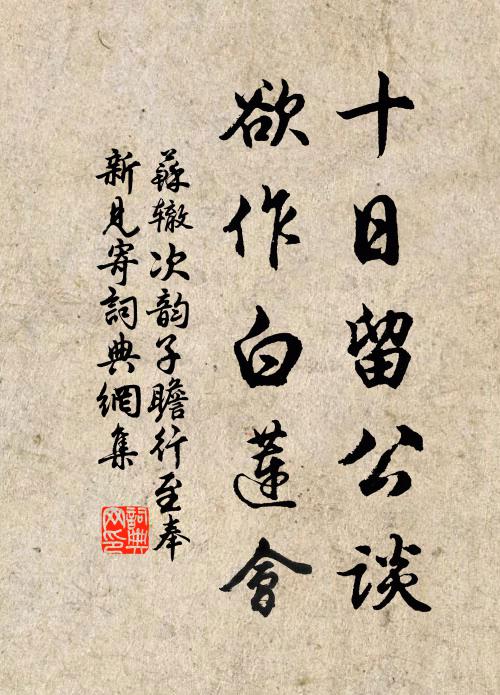 十日留公談
欲作白蓮會
蘇辙次韵子瞻行至奉
新見寄詞典網集
詞典
网印